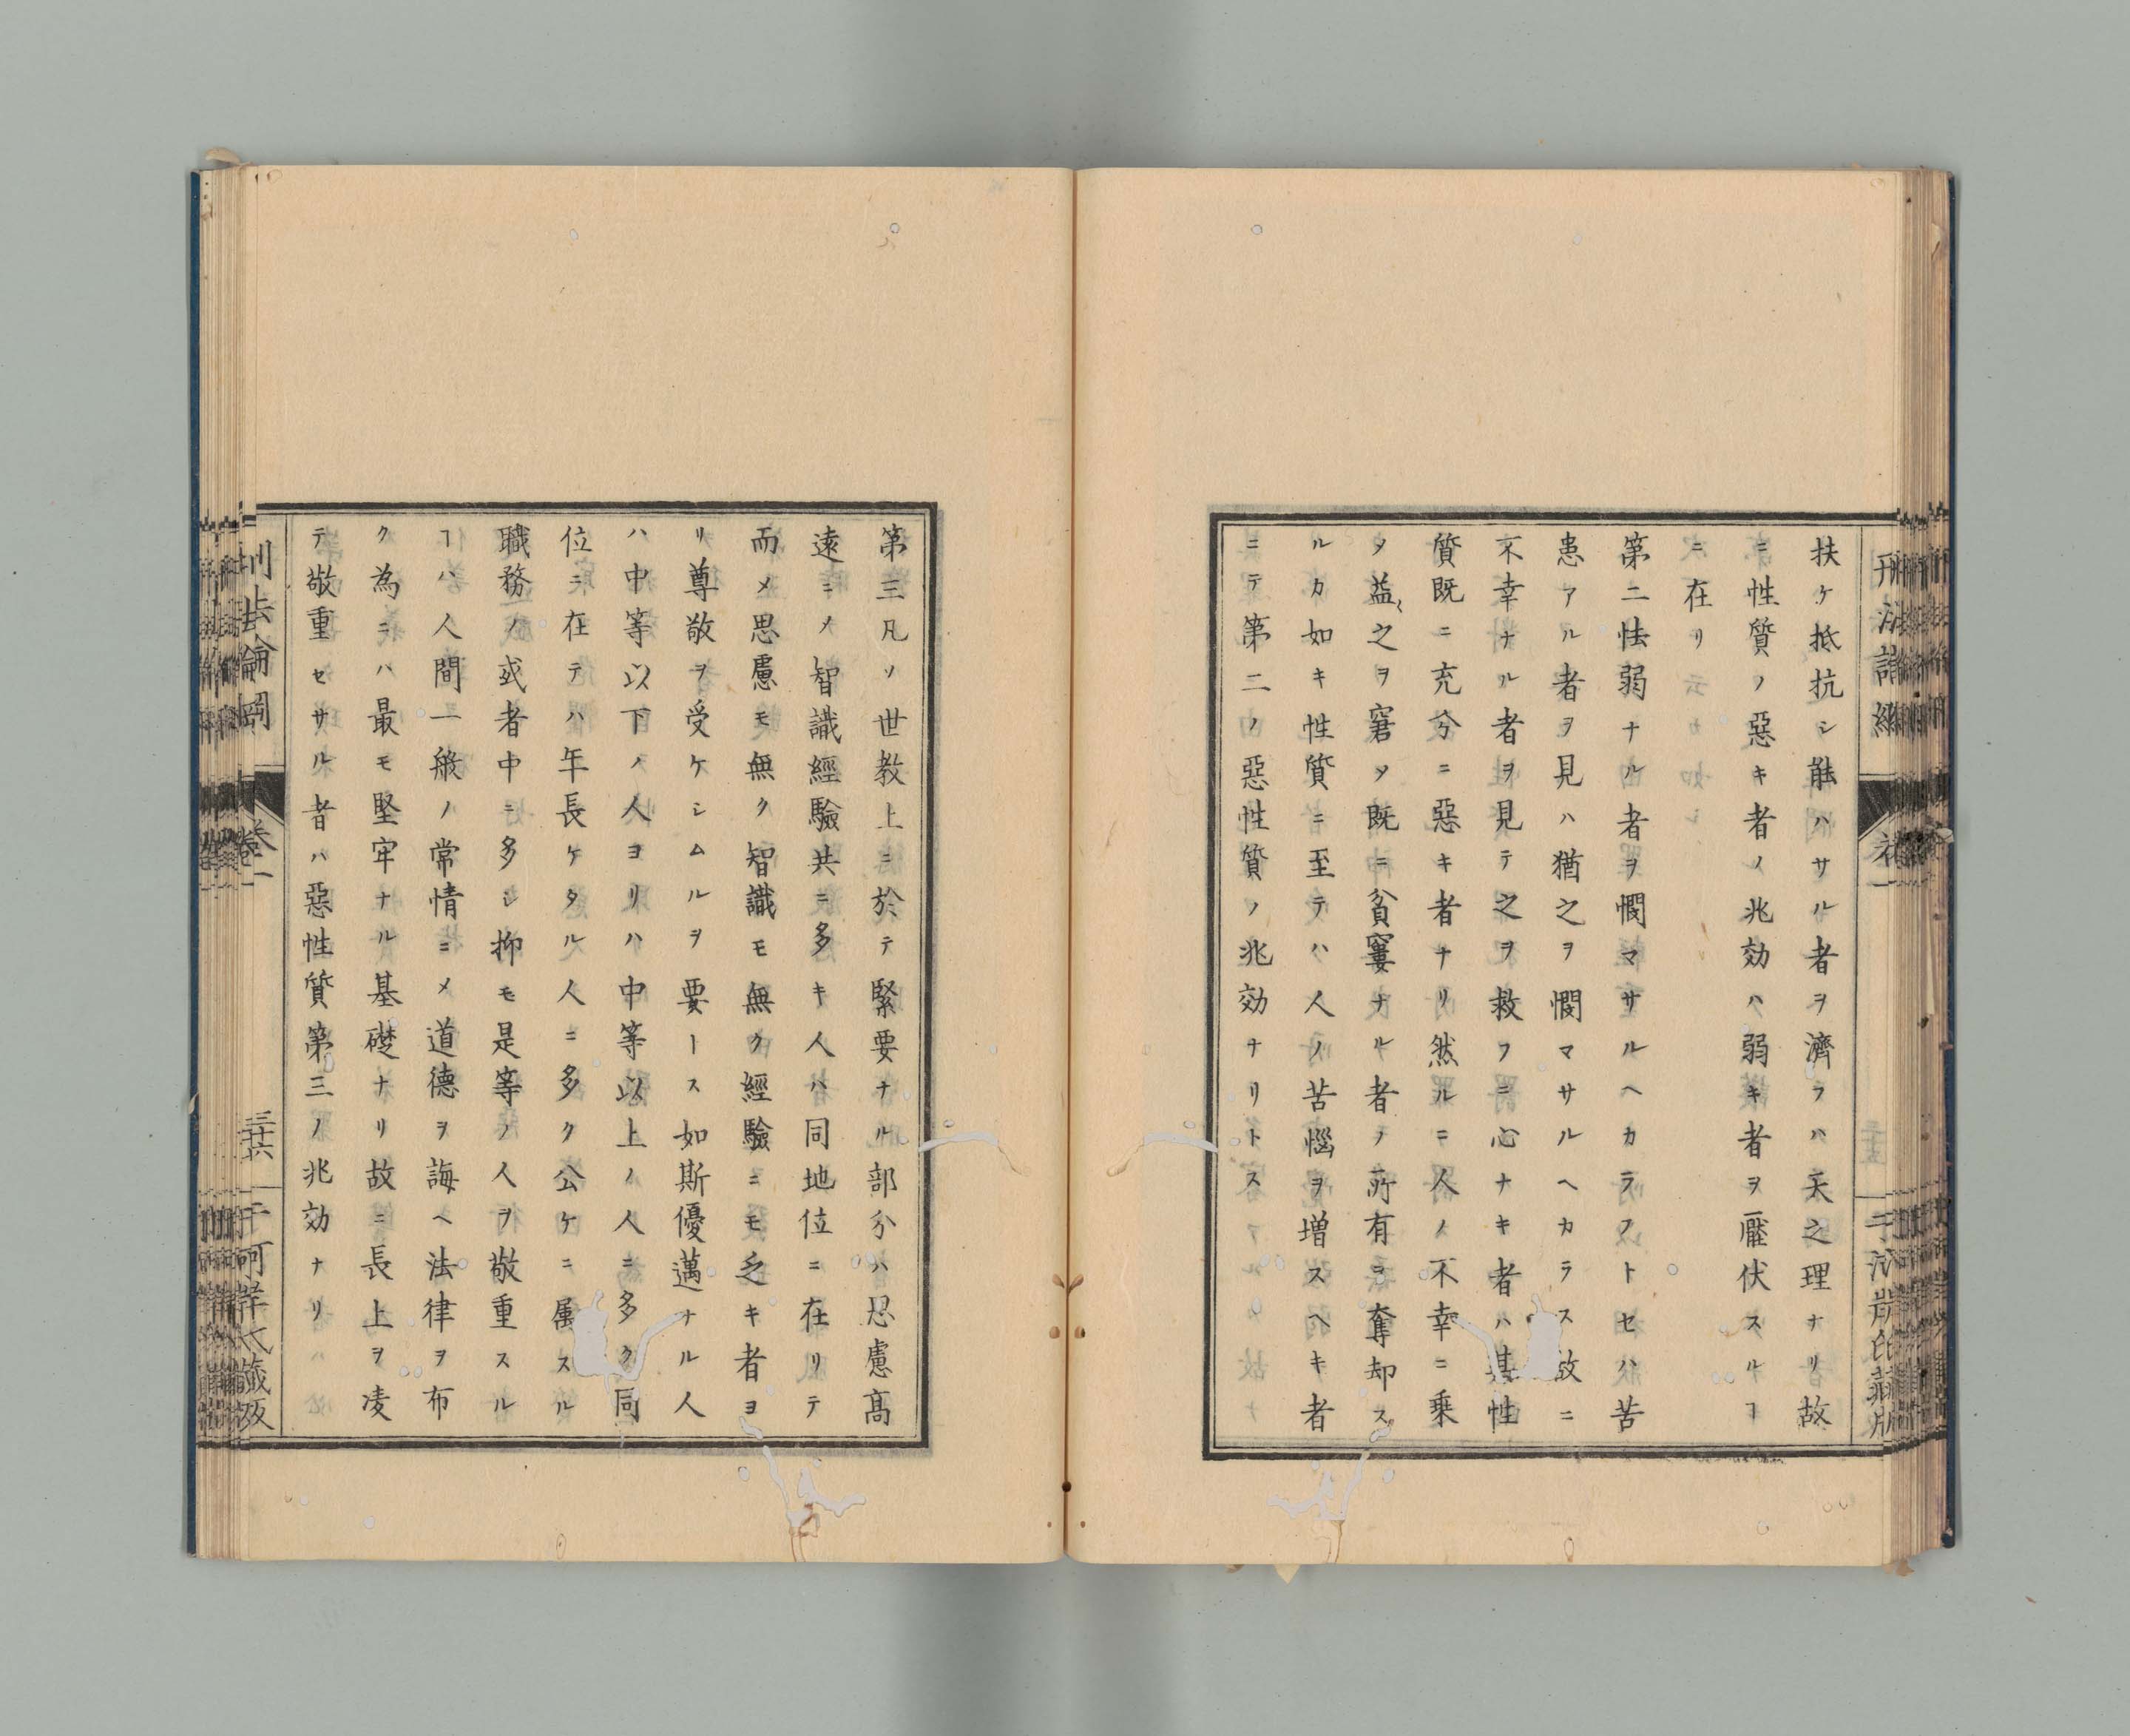 扶ケ抵抗シ能ハサル者ヲ濟フハ天之理ナリ故
ニ性質ノ惡キ者ノ兆効ハ弱キ者ヲ壓伏スルヿ
ニ在リ
第二怯弱ナル者ヲ憫マサルヘカラストセハ苦
患アル者ヲ見ハ猶之ヲ憫マサルヘカラス故ニ
不幸ナル者ヲ見テ之ヲ救フニ心ナキ者ハ其性
質既ニ充分ニ惡キ者ナリ然ルニ人ノ不幸ニ乗
タ益〻之ヲ窘タ既ニ貧窶ナル者ノ所有ヲ奪却ス
ルカ如キ性質ニ至テハ人ノ苦惱ヲ増スヘキ者
ニテ第二ノ惡性質ノ兆効ナリトス
第三凡ソ世教上ニ於テ緊要ナル部分ハ思慮髙
遠ニメ智識經驗共ニ多キ人ハ同地位ニ在リテ
而メ思慮モ無ク智識モ無ク經驗ニモ乏キ者ヨ
リ尊敬ヲ受ケシムルヲ要ース如斯優邁ナル人
ハ中等以下ノ人ヨリハ中等以上ノ人ニ多ク同
位ニ在テハ年長ケタル人ニ多ク公ケニ属スル
職務ノ或者中ニ多シ抑モ是等ノ人ヲ敬重スル
ヿハ人間一般ノ常情ニメ道德ヲ誨ヘ法律ヲ布
ク為ニハ最モ堅牢ナル基礎ナリ故ニ長上ヲ凌
テ敬重セサル者ハ惡性質第三ノ兆効ナリ
卷一
三十六